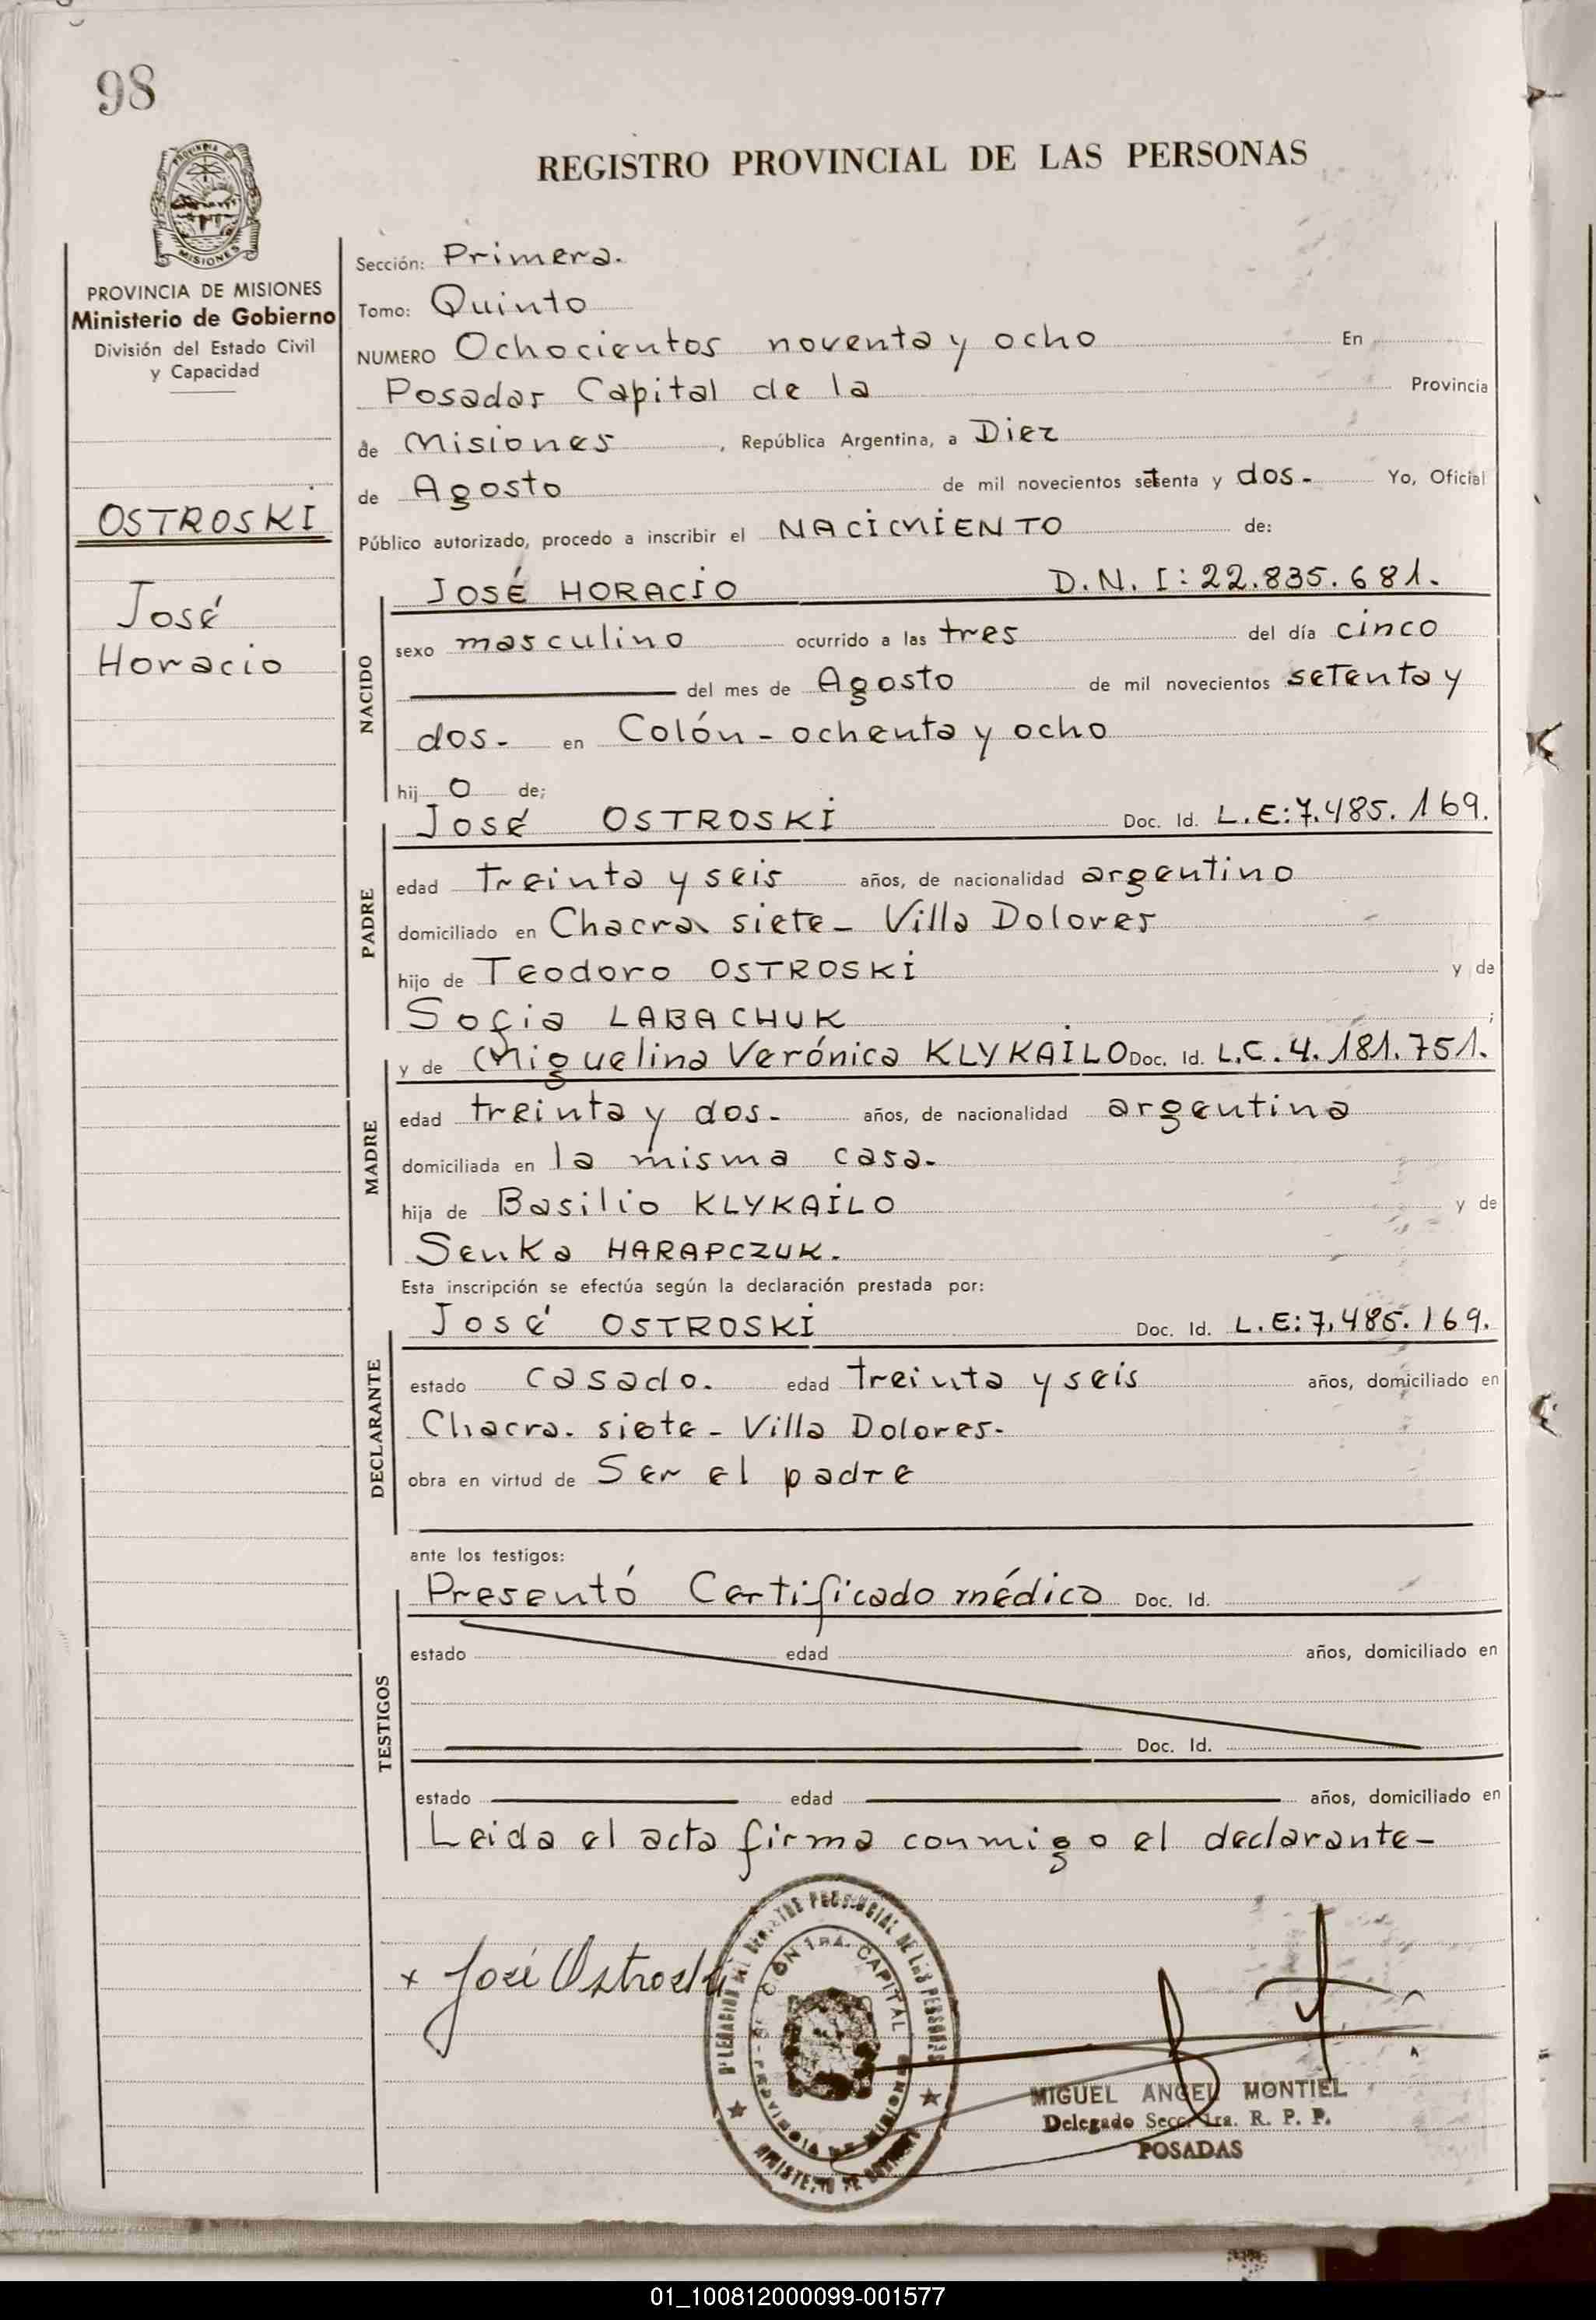 98
REGISTRO PROVINCIAL DE LAS PERSONAS
PROVINCIA DE MISIONES
Ministerio de Gobierno
División del Estado Civil
y Capacidad
OSTROSKI
José
Horacio
Sección: Primera.
Tomo: Quinto
NUMERO Ochocientos noventa y ocho En
Posadas Capital de la Provincia
de Misiones, República Argentina, a Diez
de Agosto de mil novecientos setenta y dos.- Yo, Oficial
Público autorizado, procedo a inscribir el NACIMIENTO de:
NACIDO
JOSÉ HORACIO D.N.I: 22.835.681.
sexo masculino ocurrido a las tres del día cinco
del mes de Agosto de mil novecientos setenta y
dos.- en Colón - ochenta y ocho
hij o de;
PADRE
José OSTROSKI Doc. Id. L.E: 7.485.169.
edad treinta y seis años, de nacionalidad argentino
domiciliado en Chacra siete - Villa Dolores
hijo de Teodoro OSTROSKI y de
Sofia LABACHUK ;
MADRE
y de Miguelina Verónica KLYKAILO Doc. Id. L.C. 4.181.751.
edad treinta y dos.- años, de nacionalidad argentina
domiciliada en la misma casa.-
hija de Basilio KLYKAILO y de
Senka HARAPCZUK.
Esta inscripción se efectúa según la declaración prestada por:
DECLARANTE
José OSTROSKI Doc. Id. L.E: 7.485.169.
estado casado. edad treinta y seis años, domiciliado en
Chacra. siete - Villa Dolores.-
obra en virtud de Ser el padre
ante los testigos:
TESTIGOS
Presentó Certificado médico Doc. Id.
estado edad años, domiciliado en
Doc. Id.
estado edad años, domiciliado en
Leida el acta firma conmigo el declarante-
x José Ostroski
MIGUEL ANGEL MONTIEL
Delegado Secc. 1ra. R. P. P.
POSADAS
01_100812000099-001577